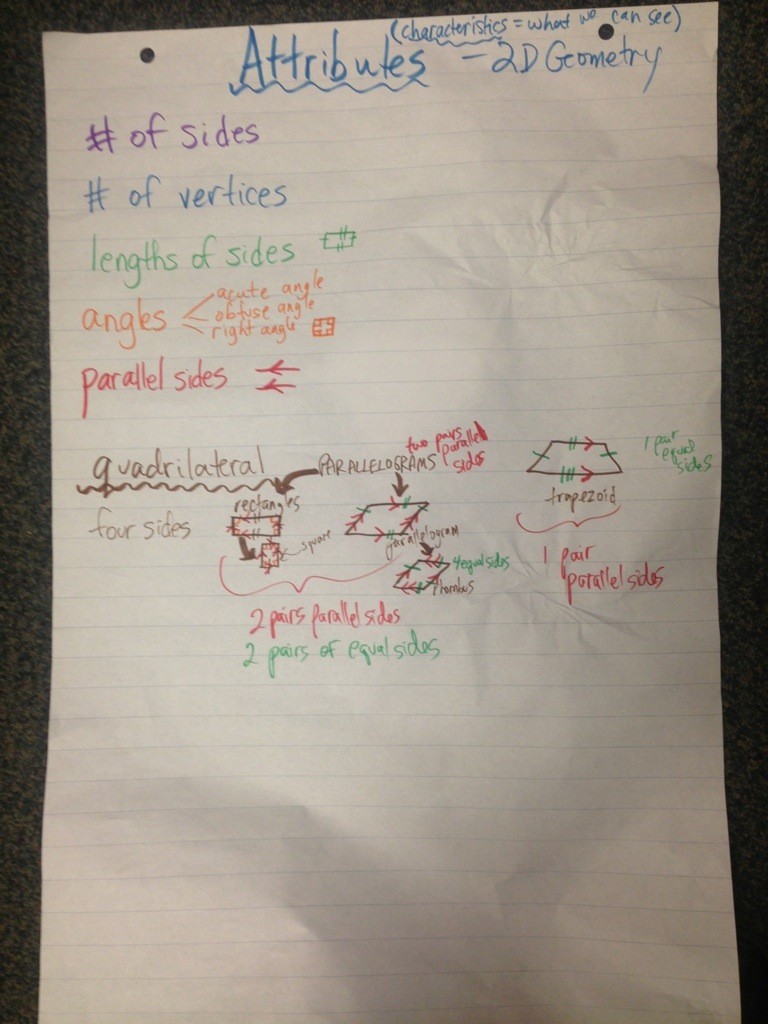 (characteristics = what we can see)
Attributes - 2D Geometry
# of sides
# of vertices
lengths of sides
angles
acute angle
obtuse angle
right angle
parallel sides
quadrilateral
four sides
PARALLELOGRAMS
two pairs
parallel
sides
rectangles
square
parallelogram
4 equal sides
rhombus
2 pairs parallel sides
2 pairs of equal sides
1 pair
equal
sides
trapezoid
1 pair
parallel sides